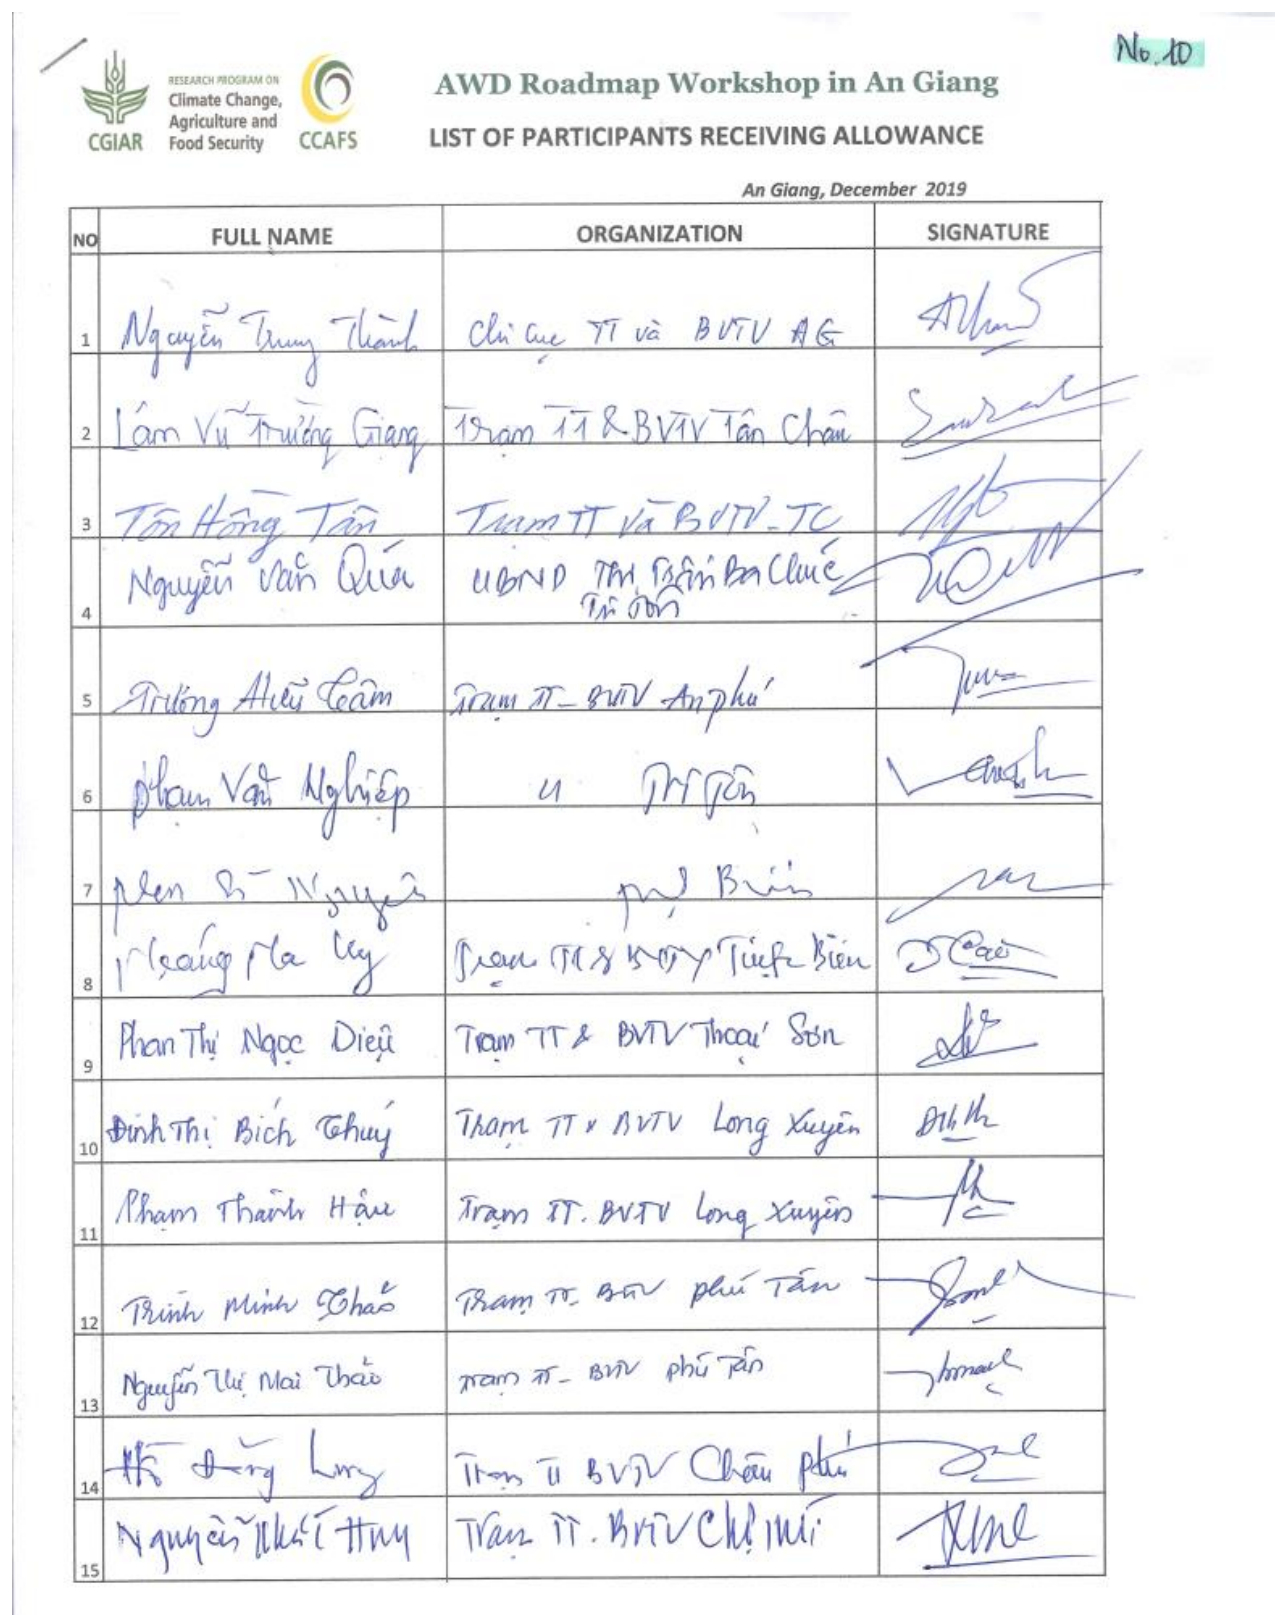 No. 10
RESEARCH PROGRAM ON
Climate Change,
Agriculture and
Food Security
CGIAR
CCAFS
AWD Roadmap Workshop in An Giang
LIST OF PARTICIPANTS RECEIVING ALLOWANCE
An Giang, December 2019
NO FULL NAME ORGANIZATION SIGNATURE
1 Nguyễn Trung Thành Chi cục TT và BVTV AG
2 Lâm Vũ Trường Giang Trạm TT & BVTV Tân Châu
3 Tôn Hồng Tân Trạm TT và BVTV-TC
4 Nguyễn Văn Quá UBND Thị Trấn Ba Chúc
Tri Tôn
5 Trương Hữu Tâm Trạm TT- BVTV An phú
6 Phạm Văn Nghiệp u Tri Tôn
7
8 Trạm TT & BVTV Tịnh Biên
9 Phan Thị Ngọc Diệu Trạm TT & BVTV Thoại Sơn
10 Đinh Thị Bích Thuý Trạm TT & BVTV Long Xuyên
11 Phạm Thành Hậu Trạm TT. BVTV Long Xuyên
12 Trịnh Minh Thảo Trạm TT- BVTV phú Tân
13 Nguyễn Thị Mai Thảo Trạm TT- BVTV phú Tân
14 Hồ Đăng Trạm TT BVTV Châu phú
15 Nguyễn Nhất Huy Trạm TT. BVTV